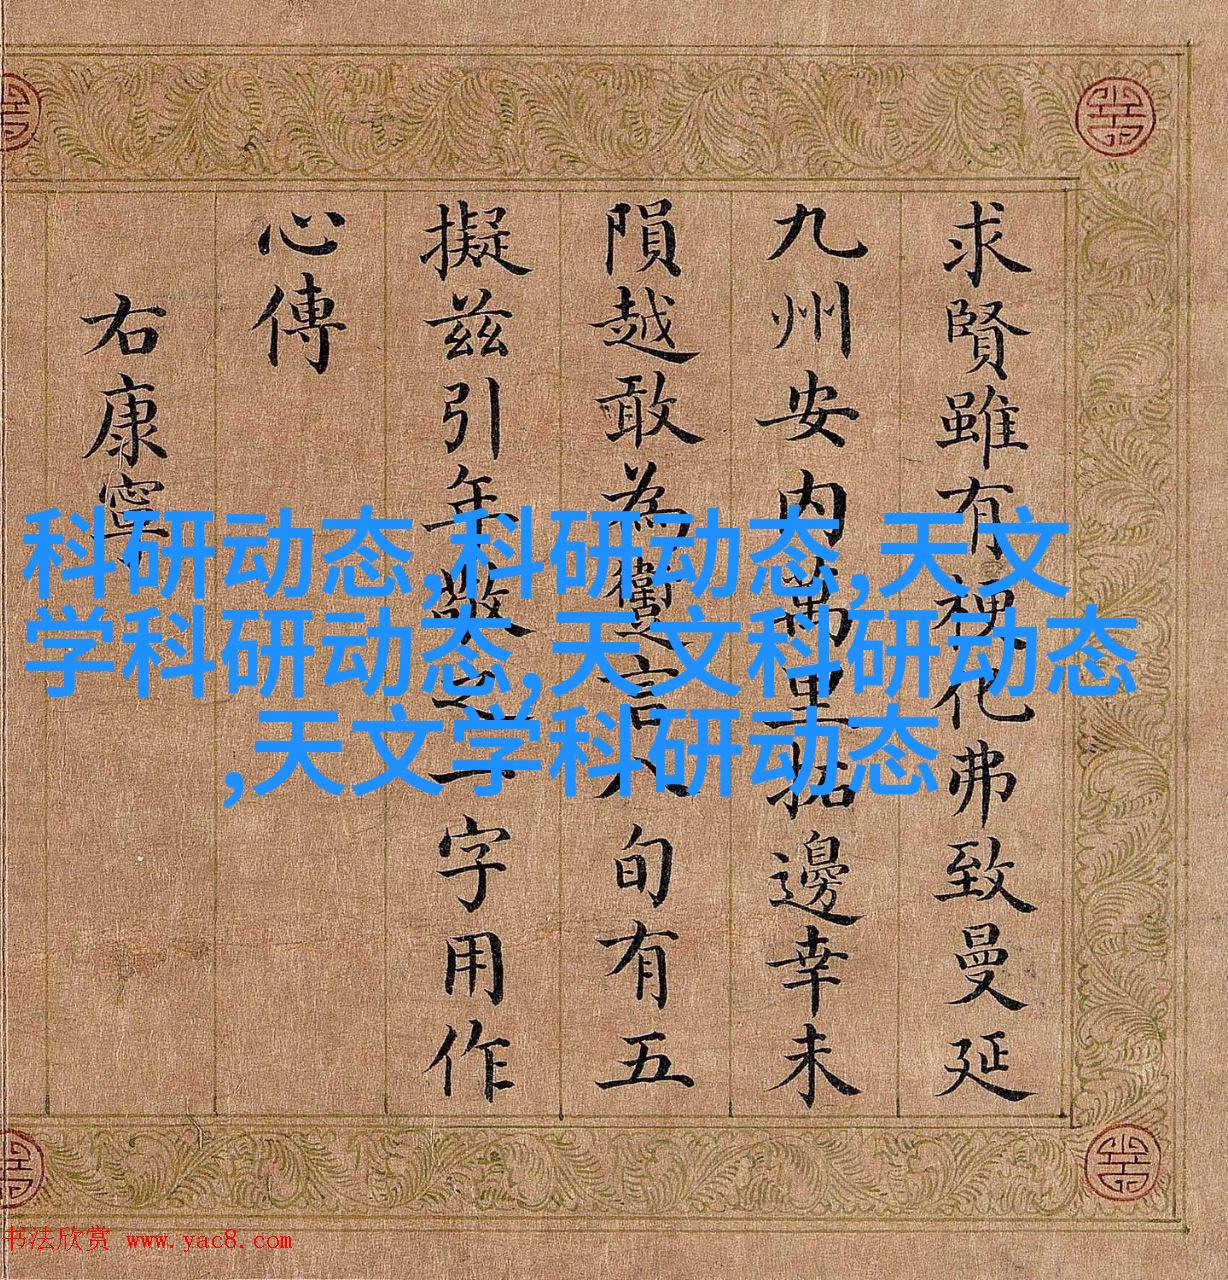 求賢雖有裨化弗致曼延
九州安内萬里拓邊幸未
隕越敢為躗言八旬有五
擬兹引年敬之一字用作
心傳
右康寧
科研动态,科研动态,天文
学科研动态,天文科研动态
,天文学科研动态
书法欣赏 www.yac8.com